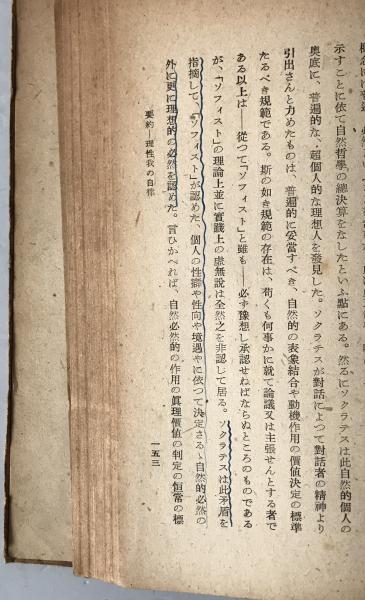 示すことに依て自然哲學の總決算をなしたといふ點にある。然るにソクラテスは此自然的個人の
奧底に、普遍的な、超個人的な理想人を發見した。ソクラテスが對話によつて對話者の精神より
引出さんと力めたものは、普遍的に妥當すべき、自然的の表象結合や動機作用の價値決定の標準
たるべき規範である。斯の如き規範の存在は、苟くも何事かに就て論議又は主張せんとする者で
ある以上は――從つて「ソフィスト」と雖も――必ず豫想し承認せねばならぬところのものである
が、「ソフィスト」の理論上並に實踐上の虛無說は全然之を非認して居る。ソクラテスは此矛盾を
指摘して、「ソフィスト」が認めた、個人の性癖や性向や境遇やに依つて決定さるゝ自然的必然の
外に更に理想的の必然を認めた。言ひかへれば、自然必然的の作用の眞理價値の判定の恒常の標
要約―理性我の自律
一五三